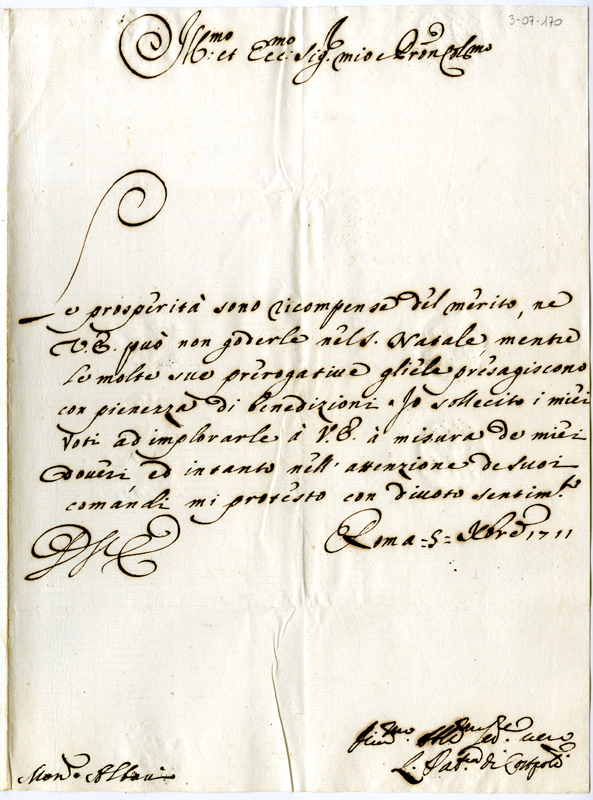 3-07-170
Ill:mo et Ecc:mo Sig. mio e Pron Colmo
Le prosperità sono ricompense del merito, ne
V.E. può non goderle nel S. Natale, mentre
le molte sue prerogative gliele presagiscono
con pienezza di benedizioni. Io sollecito i miei
voti ad implorarle à V.E. à misura de miei
doveri ed intanto nell' attenzione de suoi
comandi mi protesto con divoto sentim.to
Roma 5 Xbre 1711
DVE
Mon. Albani
vero
di